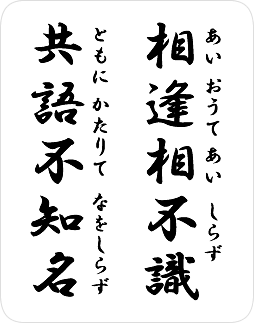 相逢相不識
あい おうて あい しらず
共語不知名
ともに かたりて なをしらず